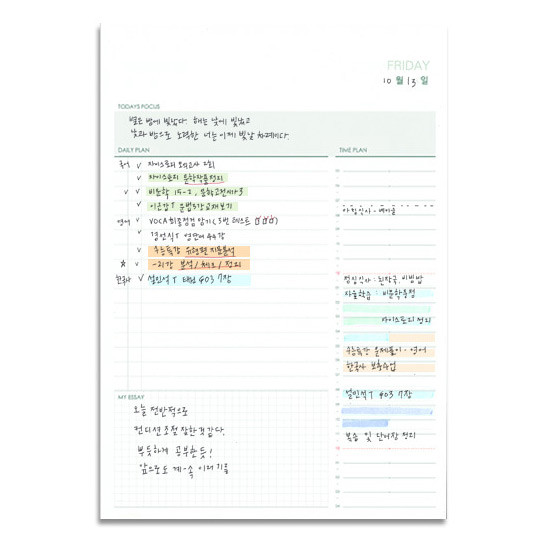 FRIDAY
10 월 13 일
TODAYS FOCUS
별은 밤에 빛났다. 해는 낮에 빛났고
낮과 밤으로 노력한 너는 이제 빛날 차례다.
DAILY PLAN
국어 ✓ 자이스토리 모의고사 2회
✓ 자이스토리 문학작품정리
✓ ✓ 비문학 15-2, 문학고전시가3
✓ 이근갑T 문법5강교재보기
영어 ✓ VOCA 최종점검 암기 (3번 테스트
✓ 영단어 44강
✓ 수능특강 유형편 지문분석
☆ ✓ -의강 분석/체크/정리
한국사 ✓ 설민석T 태건 403 7장
TIME PLAN
아침식사 -
점심식사 : 된장국, 비빔밥
자율학습 : 비문학
자이스토리 정리
수능특강 문제풀이 - 영어
한국사 보충수업
설민석T 403 7장
복습 및 단어장 정리
MY ESSAY
오늘 전반적으로
컨디션조절 잘한것같다.
뿌듯하게 공부한듯!
앞으로도 계-속 이러기를